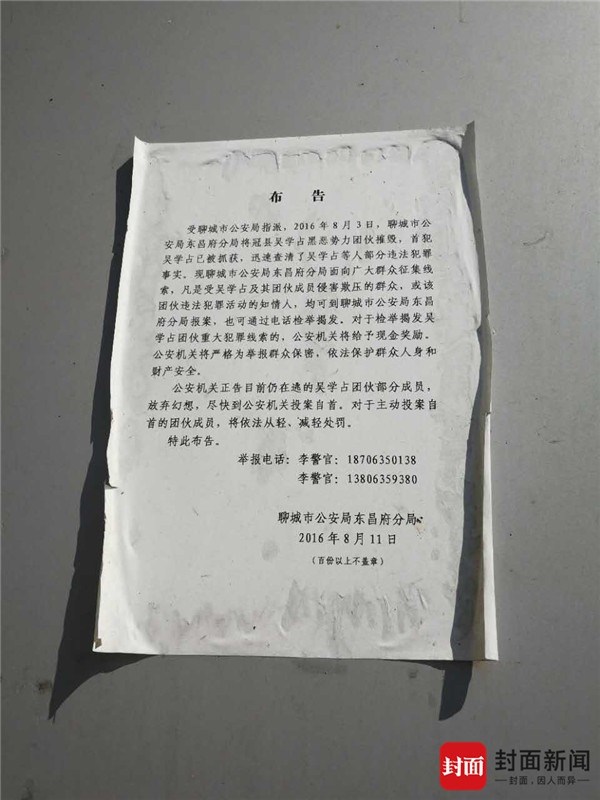 布 告
受聊城市公安局指派，2016年8月3日，聊城市公
安局东昌府分局将冠县吴学占黑恶势力团伙摧毁，首犯
吴学占已被抓获，迅速查清了吴学占等人部分违法犯罪
事实。现聊城市公安局东昌府分局面向广大群众征集线
索，凡是受吴学占及其团伙成员侵害欺压的群众，或该
团伙违法犯罪活动的知情人，均可到聊城市公安局东昌
府分局报案，也可通过电话检举揭发。对于检举揭发吴
学占团伙重大犯罪线索的，公安机关将给予现金奖励。
公安机关将严格为举报群众保密，依法保护群众人身和
财产安全。
公安机关正告目前仍在逃的吴学占团伙部分成员，
放弃幻想，尽快到公安机关投案自首。对于主动投案自
首的团伙成员，将依法从轻、减轻处罚。
特此布告。
举报电话：李警官：18706350138
李警官：13806359380
聊城市公安局东昌府分局
2016年8月11日
（百份以上不盖章）
封面 封面新闻
封面，因人而异